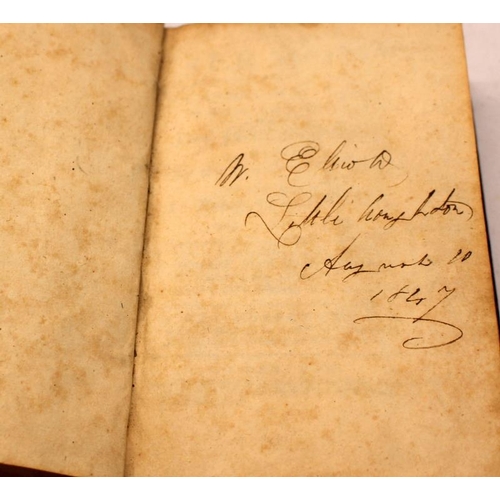 W. Eliott
Little Houghton
August 10
1847